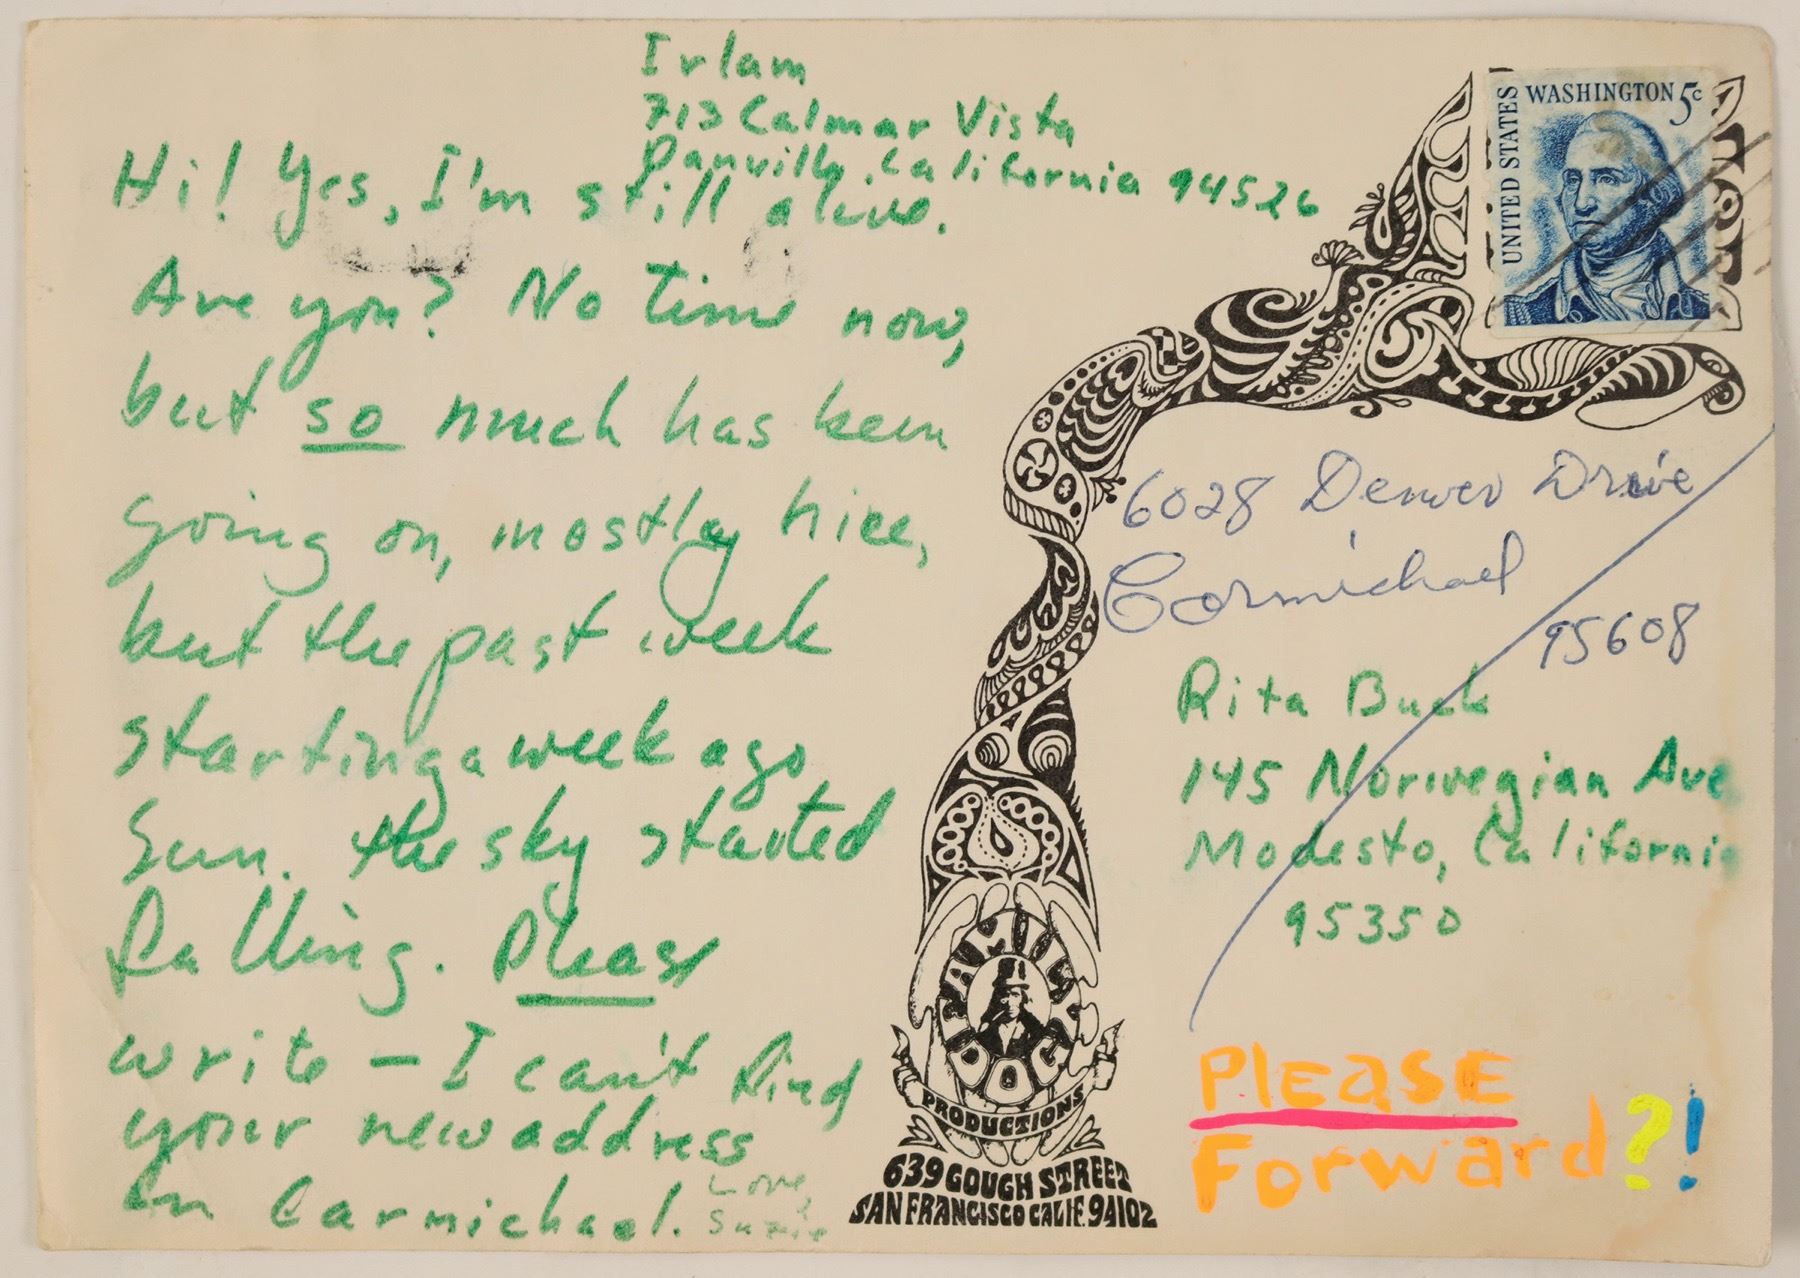 Irlam
713 Calmar Vista
Danville, California 94526
Hi! Yes, I'm still alive.
Are you? No time now,
but so much has been
going on, mostly nice,
but the past week
starting a week ago
Sun. the sky started
falling. Please
write — I can't find
your new address
in Carmichael. Love,
Suzie
UNITED STATES
WASHINGTON 5c
6028 Denver Drive
Carmichael
95608
Rita Buck
145 Norwegian Ave
Modesto, California
95350
PLEASE
Forward?!
FAMILY DOG
PRODUCTIONS
639 GOUGH STREET
SAN FRANCISCO CALIF. 94102